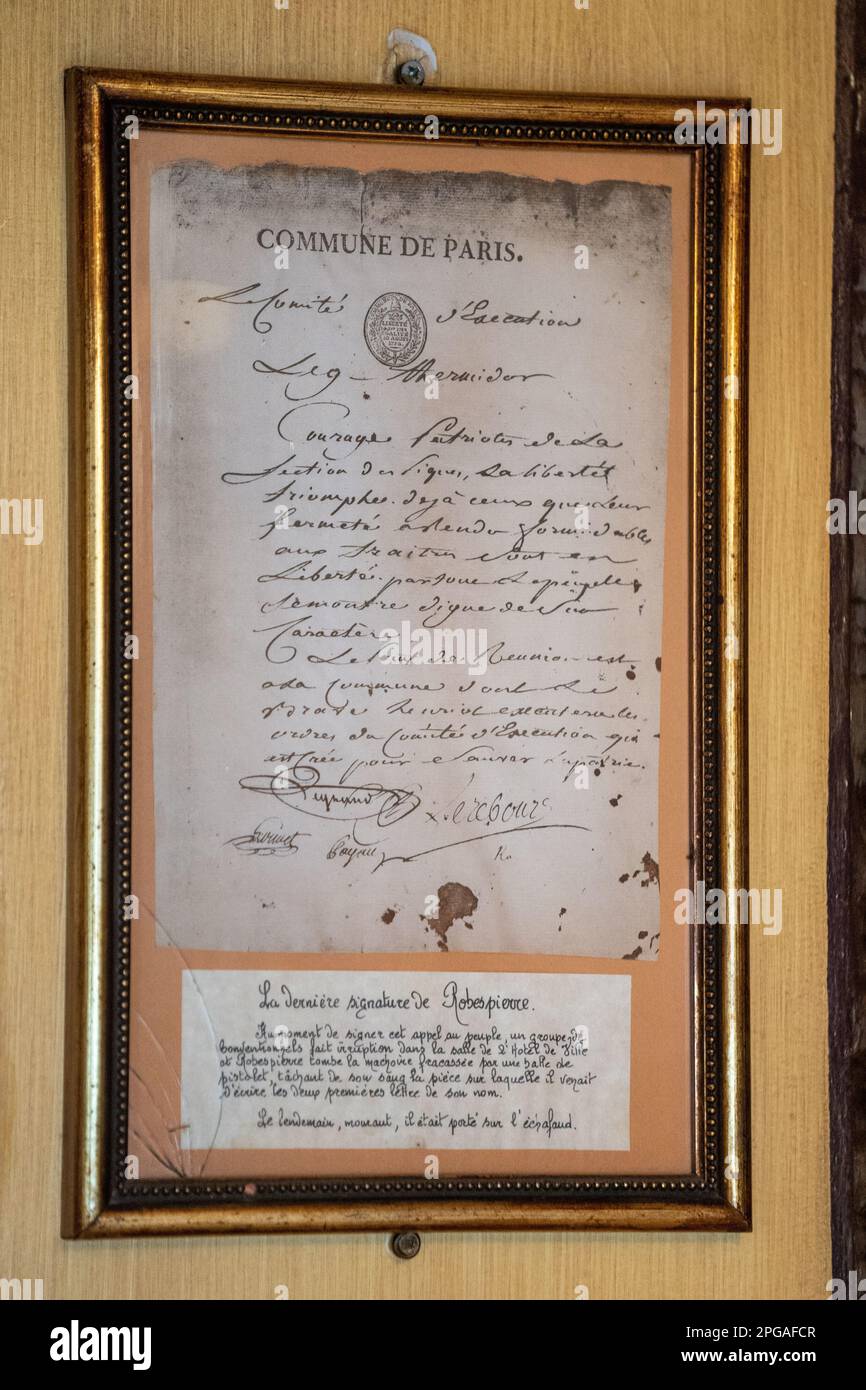 COMMUNE DE PARIS.
Le Comité d'Execution
LIBERTÉ
ÉGALITÉ
10 AOUST
1792.
Le 9 - thermidor
Courage Patriotes de La
Section des Piques, La liberté
triomphe. deja ceux que Leur
fermeté a rendu formidables
aux traitres sont en
Liberté. partout Le peuple
se montre digne de son
Caractère
Le Point de Reunion est
a La Commune dont Le
brave henriot executera les
ordres du Comité d'Execution qui
est Créé pour Sauver La patrie.
Legrand Lerebours
Louvet Payan Ro
La dernière signature de Robespierre.
Au moment de signer cet appel au peuple, un groupe de
Conventionnels fait irruption dans la salle de l'Hotel de Ville
et Robespierre tombe la machoire fracassée par une balle de
pistolet, tâchant de son sang la pièce sur laquelle il venait
d'écrire les deux premières lettre de son nom.
Le lendemain, mourant, il était porté sur l'échafaud.
alamy
Image ID: 2PGAFCR
www.alamy.com